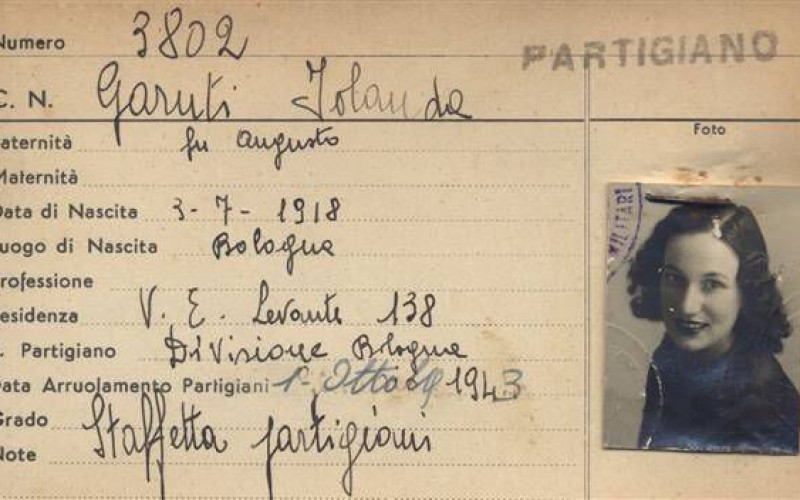 Numero 3802
PARTIGIANO
C. N. Garuti Jolanda
Foto
aternità fu Augusto
Maternità
Data di Nascita 3-7-1918
uogo di Nascita Bologna
rofessione
esidenza V. E. Levante 138
. Partigiano Divisione Bologna
Data Arruolamento Partigiani 1- 1943
Grado Staffetta partigiani
Note
MILITARI